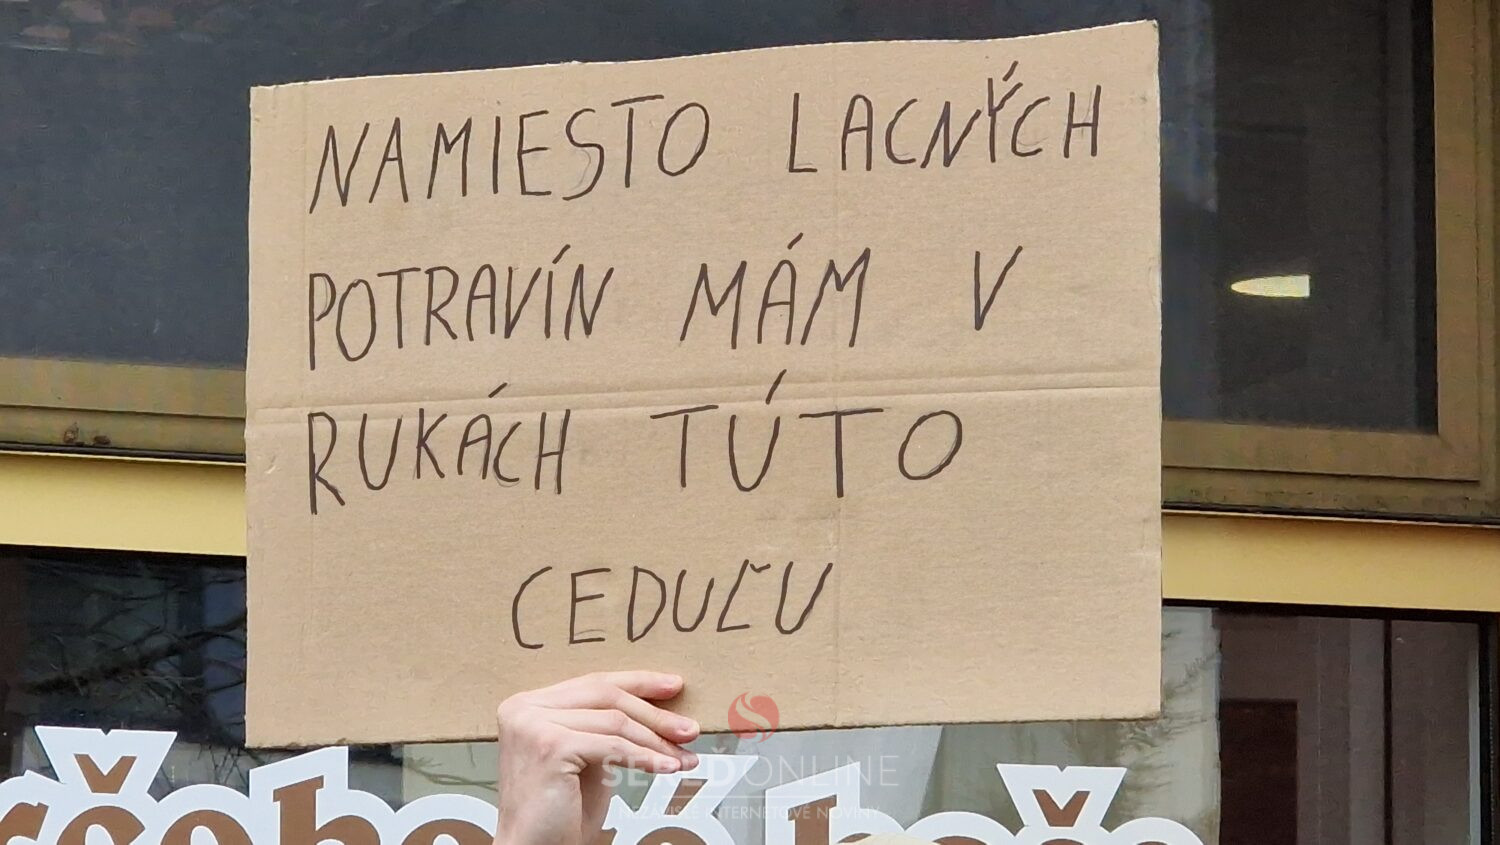 NAMIESTO LACNÝCH
POTRAVÍN MÁM V
RUKÁCH TÚTO
CEDUĽU
SEREĎONLINE
NEZÁVISLÉ INTERNETOVÉ NOVINY